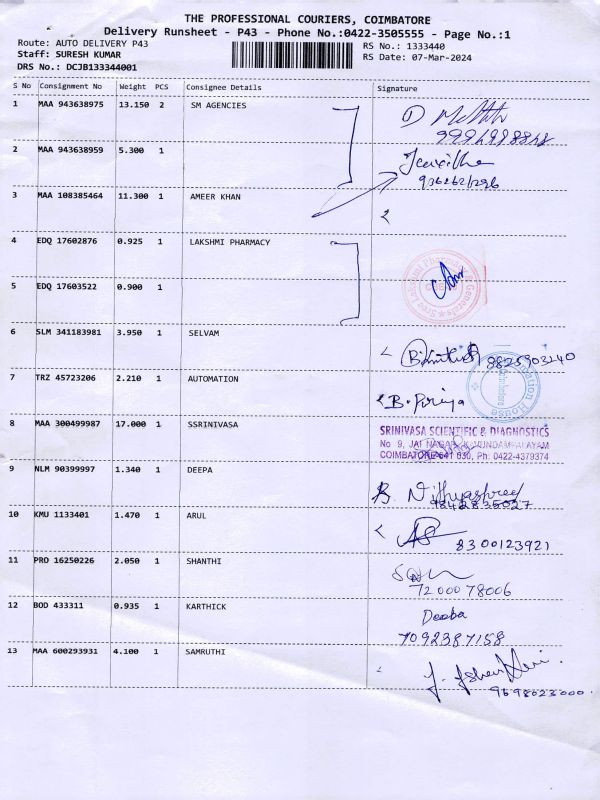 THE PROFESSIONAL COURIERS, COIMBATORE
Delivery Runsheet - P43 - Phone No.:0422-3505555 - Page No.:1
Route: AUTO DELIVERY P43 RS No.: 1333440
Staff: SURESH KUMAR RS Date: 07-Mar-2024
DRS No.: DCJB133344001
S No Consignment No Weight PCS Consignee Details Signature
1 MAA 943638975 13.150 2 SM AGENCIES
2 MAA 943638959 5.300 1
3 MAA 108385464 11.300 1 AMEER KHAN
4 EDQ 17602876 0.925 1 LAKSHMI PHARMACY
5 EDQ 17603522 0.900 1
6 SLM 341183981 3.950 1 SELVAM
9825903240
7 TRZ 45723206 2.210 1 AUTOMATION
B. Priya
8 MAA 300499987 17.000 1 SSRINIVASA
SRINIVASA SCIENTIFIC & DIAGNOSTICS
COIMBATORE-641 030, Ph: 0422-4379374
9 NLM 90399997 1.340 1 DEEPA
B. Nithyashree
9842835027
10 KMU 1133401 1.470 1 ARUL
8300123921
11 PRO 16250226 2.050 1 SHANTHI
7200078006
12 BOD 433311 0.935 1 KARTHICK
Deeba
7092387158
13 MAA 600293931 4.100 1 SAMRUTHI
9698023000.